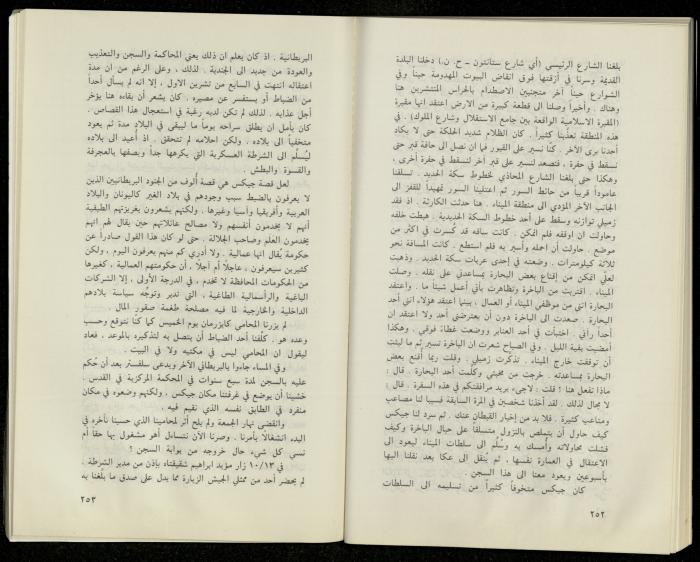 بلغنا الشارع الرئيسي (أي شارع ستانتون - ح. ن.) دخلنا البلدة
القديمة وسرنا في أزقتها فوق انقاض البيوت المهدومة حيناً وفي
الشوارع حيناً آخر متجنبين الاصطدام بالحراس المنتشرين هنا
وهناك . وأخيراً وصلنا الى قطعة كبيرة من الارض اعتقد انها مقبرة
(المقبرة الاسلامية الواقعة بين جامع الاستقلال وشارع الملوك) . في
هذه المنطقة تعذبنا كثيراً . كان الظلام شديد الحلكة حتى لا يكاد
أحدنا يرى الآخر . كنا نسير على القبور فما ان نصل الى حافة قبر حتى
نسقط في حفرة ، فنصعد لنسير على قبر آخر لنسقط في حفرة أخرى ،
وهكذا حتى بلغنا الشارع المحاذي لخطوط سكة الحديد . تسلقنا
عاموداً قريباً من حائط السور ثم اعتلينا السور تمهيداً للقفز الى
الجانب الآخر المؤدي الى منطقة الميناء . هنا حدثت الكارثة . اذ فقد
زميلي توازنه وسقط على أحد خطوط السكة الحديدية . هبطت خلفه
وحاولت ان اوقفه فلم اتمكن . كانت ساقه قد كُسرت في اكثر من
موضع . حاولت أن احمله وأسير به فلم استطع . كانت المسافة نحو
ثلاثة كيلومترات . وضعته في إحدى عربات سكة الحديد . وذهبت
لعلي اتمكن من إقناع بعض البحارة بمساعدتي على نقله . وصلت
الميناء . اقتربت من الباخرة وتظاهرت بأني أعمل شيئاً ما . واعتقد
البحارة انني من موظفي الميناء أو العمال ، بينما اعتقد هؤلاء أنني أحد
البحارة . صعدت الى الباخرة دون أن يعترضني أحد ولا اعتقد ان
أحداً رآني . اختبأت في أحد العنابر ووضعت غطاءً فوقي . وهكذا
أمضيت بقية الليل . وفي الصباح شعرت ان الباخرة تسير ثم ما لبثت
أن توقفت خارج الميناء . تذكرت زميلي . وقلت ربما أقنع بعض
البحارة بمساعدته . خرجت من مخبئي وكلمت أحد البحارة . قال :
ماذا تفعل هنا ؟ قلت : لاجىء يريد مرافقتكم في هذه السفرة . قال :
لا مجال لذلك . لقد أخذنا شخصين في المرة السابقة فسببا لنا مصاعب
ومتاعب كثيرة . فلا بد من إخبار القبطان عنك . ثم سرد لنا جيكس
كيف حاول أن يتملص بالنزول متسلقاً على حبال الباخرة وكيف
فشلت محاولاته وأمسك به وسُلّم الى سلطات الميناء ليعود الى
الاعتقال في العمارة نفسها ، ثم يُنقل الى عكا بعد نقلنا اليها
بأسبوعين ويعود معنا الى هذا السجن .
كان جيكس متخوفاً كثيراً من تسليمه الى السلطات
٢٥٢
البريطانية . اذ كان يعلم ان ذلك يعني المحاكمة والسجن والتعذيب
والعودة من جديد الى الجندية . لذلك ، وعلى الرغم من ان مدة
اعتقاله انتهت في السابع من تشرين الاول ، إلا انه لم يسأل أحداً
من الضباط أو يستفسر عن مصيره . كان يشعر أن بقاءه هنا يؤخر
أجل عذابه . لذلك لم تكن لديه رغبة في استعجال هذا القصاص .
كان يأمل ان يطلق سراحه يوماً ما ليبقى في البلاد مدة ثم يعود
متخفياً الى بلاده . ولكن احلامه لم تتحقق . اذ أعيد الى بلاده
ليُسلَّم الى الشرطة العسكرية التي يكرهها جداً ويصفها بالعجرفة
والقسوة والبطش .
لعل قصة جيكس هي قصة أُلوف من الجنود البريطانيين الذين
لا يعرفون بالضبط سبب وجودهم في بلاد الغير كاليونان والبلاد
العربية وأفريقيا وآسيا وغيرها . ولكنهم يشعرون بغريزتهم الطبقية
أنهم لا يخدمون أنفسهم ولا مصالح عائلاتهم حين يقال لهم انهم
يخدمون العلم وصاحب الجلالة . حتى لو كان هذا القول صادراً عن
حكومة يُقال انها عمالية . ولا أدري كم منهم يعرفون اليوم ، ولكن
كثيرين سيعرفون ، عاجلاً أم آجلاً ، أن حكومتهم العمالية ، كغيرها
من الحكومات المحافظة لا تخدم ، في الدرجة الأولى ، إلا الشركات
الباغية والرأسمالية الطاغية ، التي تدير وتوجّه سياسة بلادهم
الداخلية والخارجية لما فيه مصلحة طغمة صقور المال .
لم يزرنا المحامي كايزرمان يوم الخميس كما كنا نتوقع وحسب
وعده هو . كلّفنا أحد الضباط أن يتصل به لتذكيره بالموعد ، فعاد
ليقول ان المحامي ليس في مكتبه ولا في البيت .
وفي المساء جاءوا بالبريطاني الآخر ويدعى سلفستر بعد أن حُكم
عليه بالسجن لمدة سبع سنوات في المحكمة المركزية في القدس .
خشينا أن يوضع في غرفتنا مكان جيكس ، ولكنهم وضعوه في مكان
منفرد في الطابق نفسه الذي نقيم فيه .
وانقضى نهار الجمعة ولم يلح أثر لمحامينا الذي حسبنا تأخره في
البدء انشغالاً بأمرنا . وصرنا الآن نتساءل أهو مشغول بها حقاً أم
نسي كل شيء حال خروجه من بوابة السجن ؟
في ١٠/١٣ زار مؤيد ابراهيم شقيقتاه بإذن من مدير الشرطة .
لم يحضر أحد من ممثلي الجيش الزيارة مما يدل على صدق ما بلّغنا به
٢٥٣